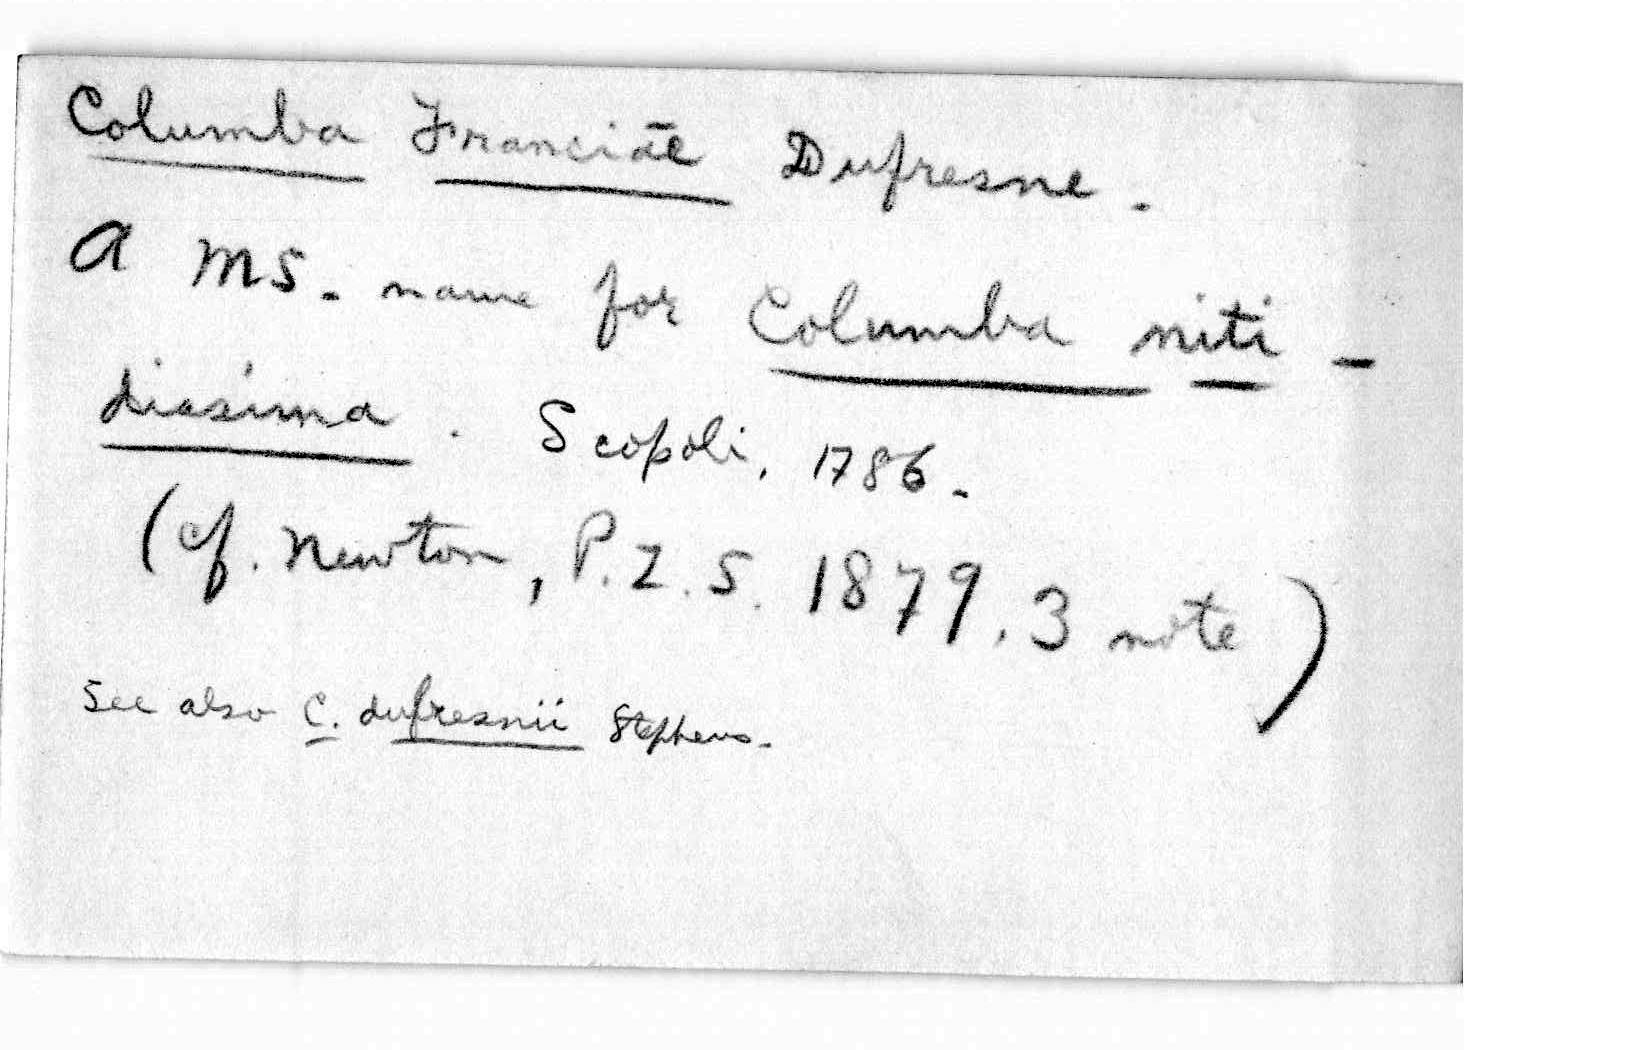 Columba Franciae Dufresne.
A MS. name for Columba niti-
dissima. Scopoli, 1786.
(cf. Newton, P.Z.S. 1879. 3 note)
See also C. dufresnii Stephens.